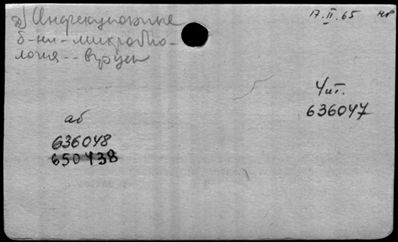 д) Инфекционные
б-ни - микробио-
логия -- вирусы
17.II.65
Чит.
636047
аб
636048
650438